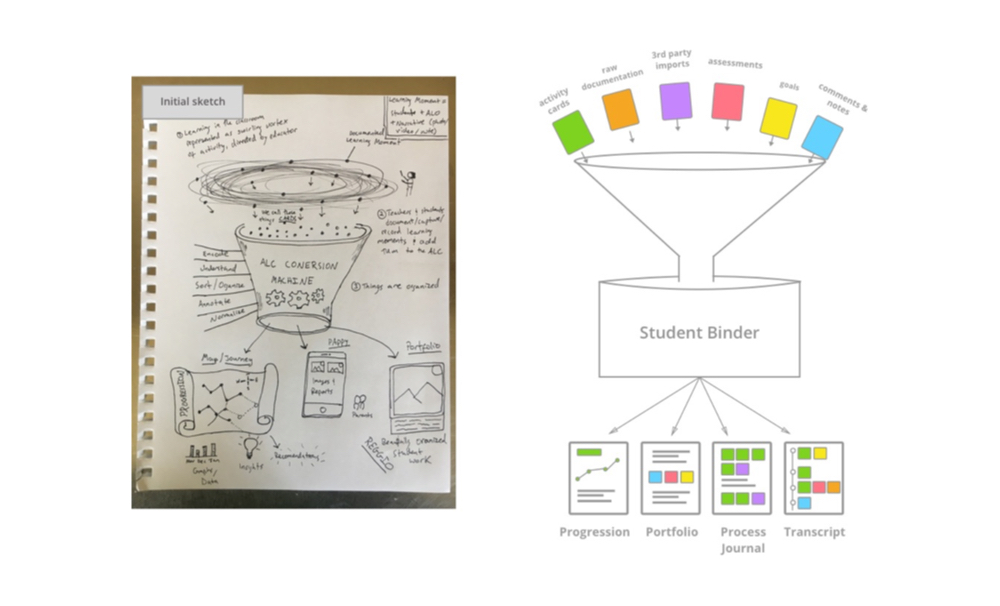 Initial sketch
① Learning in the classroom
represented as swirling vortex
of activity, directed by educator
Learning Moment =
Students + ALO
+ narrative (photo/
video/note)
documented
Learning Moment
we call these
things CARDS
② Teachers + students
document/capture/
record learning
moments + add
them to the ALC
Encode
Understand
Sort/Organize
Annotate
Normalize
ALC CONERSION
MACHINE
③ Things are organized
Map/Journey
PROGRESSION
PAppy
Images +
Reports
Parents
Portfolio
Graphs/
Data
Insights
Recomendations
REGGIO
Beautifully organized
student
work
activity
cards
raw
documentation
3rd party
imports
assessments
goals
comments &
notes
Student Binder
Progression
Portfolio
Process
Journal
Transcript